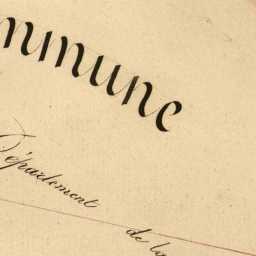 mmune
Département de la